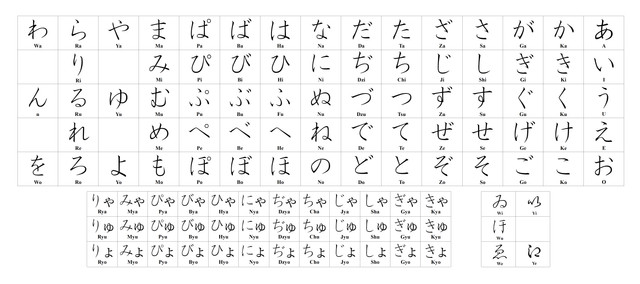 わ ら や ま ぱ ば は な だ た ざ さ が か あ
Wa Ra Ya Ma Pa Ba Ha Na Da Ta Za Sa Ga Ka A
り み ぴ び ひ に ぢ ち じ し ぎ き い
Ri Mi Pi Bi Hi Ni Dzi Chi Ji Shi Gi Ki I
ん る ゆ む ぷ ぶ ふ ぬ づ つ ず す ぐ く う
n Ru Yu Mu Pu Bu Fu Nu Dzu Tsu Zu Su Gu Ku U
れ め ぺ べ へ ね で て ぜ せ げ け え
Re Me Pe Be He Ne De Te Ze Se Ge Ke E
を ろ よ も ぽ ぼ ほ の ど と ぞ そ ご こ お
Wo Ro Yo Mo Po Bo Ho No Do To Zo So Go Ko O
りゃ みゃ ぴゃ びゃ ひゃ にゃ ぢゃ ちゃ じゃ しゃ ぎゃ きゃ ゐ
Rya Mya Pya Bya Hya Nya Dzya Cha Jya Sha Gya Kya Wi Yi
りゅ みゅ ぴゅ びゅ ひゅ にゅ ぢゅ ちゅ じゅ しゅ ぎゅ きゅ
Ryu Myu Pyu Byu Hyu Nyu Dzyu Chu Jyu Shu Gyu Kyu Wu
りょ みょ ぴょ びょ ひょ にょ ぢょ ちょ じょ しょ ぎょ きょ ゑ
Ryo Myo Pyo Byo Hyo Nyo Dzyo Cho Jyo Sho Gyo Kyo We Ye